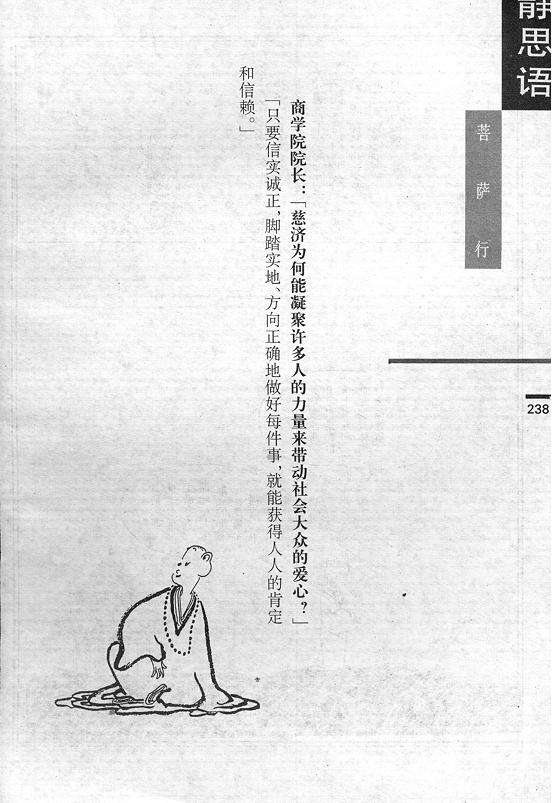 静思语
菩萨行
238
商学院院长：「慈济为何能凝聚许多人的力量来带动社会大众的爱心？」
「只要信实诚正，脚踏实地、方向正确地做好每件事，就能获得人人的肯定
和信赖。」